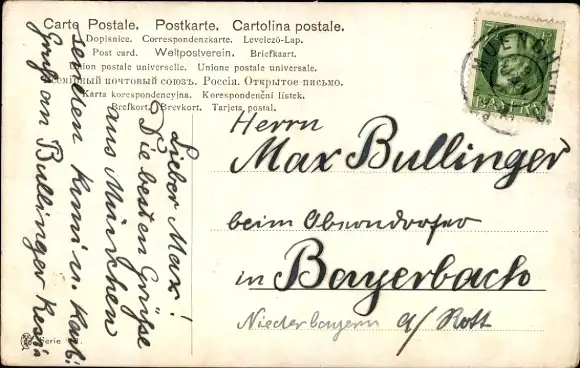 Carte Postale. Postkarte. Cartolina postale.
Dopisnice. Correspondenzkarte. Levelező-Lap.
Post card. Weltpostverein. Briefkaart.
Union postale universelle. Unione postale universale.
Всемірный почтовый союзъ. Россія. Открытое письмо.
Karta korespondencyjna. Korespondenční lístek.
Brefkort. Brevkort. Tarjeta postal.
BAYERN
Herrn
Max Bullinger
beim Oberndorfer
in Bayerbach
Niederbayern a/Rott
Lieber Max!
Die besten Grüße
aus München
senden
Gruß an Bullinger Rosi
Serie